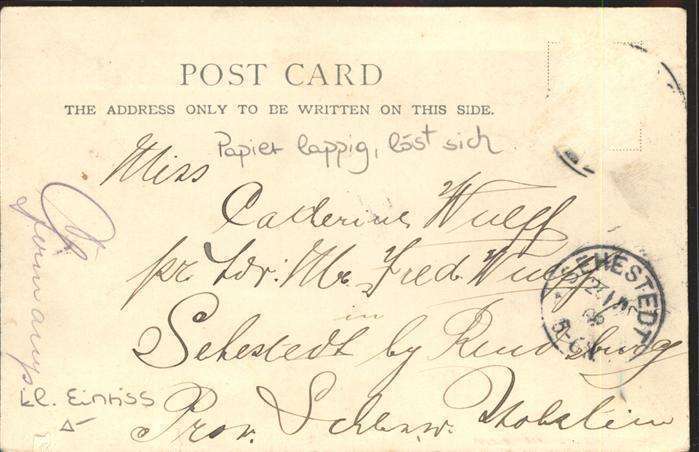 POST CARD
THE ADDRESS ONLY TO BE WRITTEN ON THIS SIDE.
Papier lappig, löst sich
Miss
Catherine Wulff
pr. Adr: Mr Fred. Wulff
in
Sehestedt by Rendsburg
Prov. Schlesw. Holstein
Germany
kl. Einriss
SEHESTEDT
5-6N